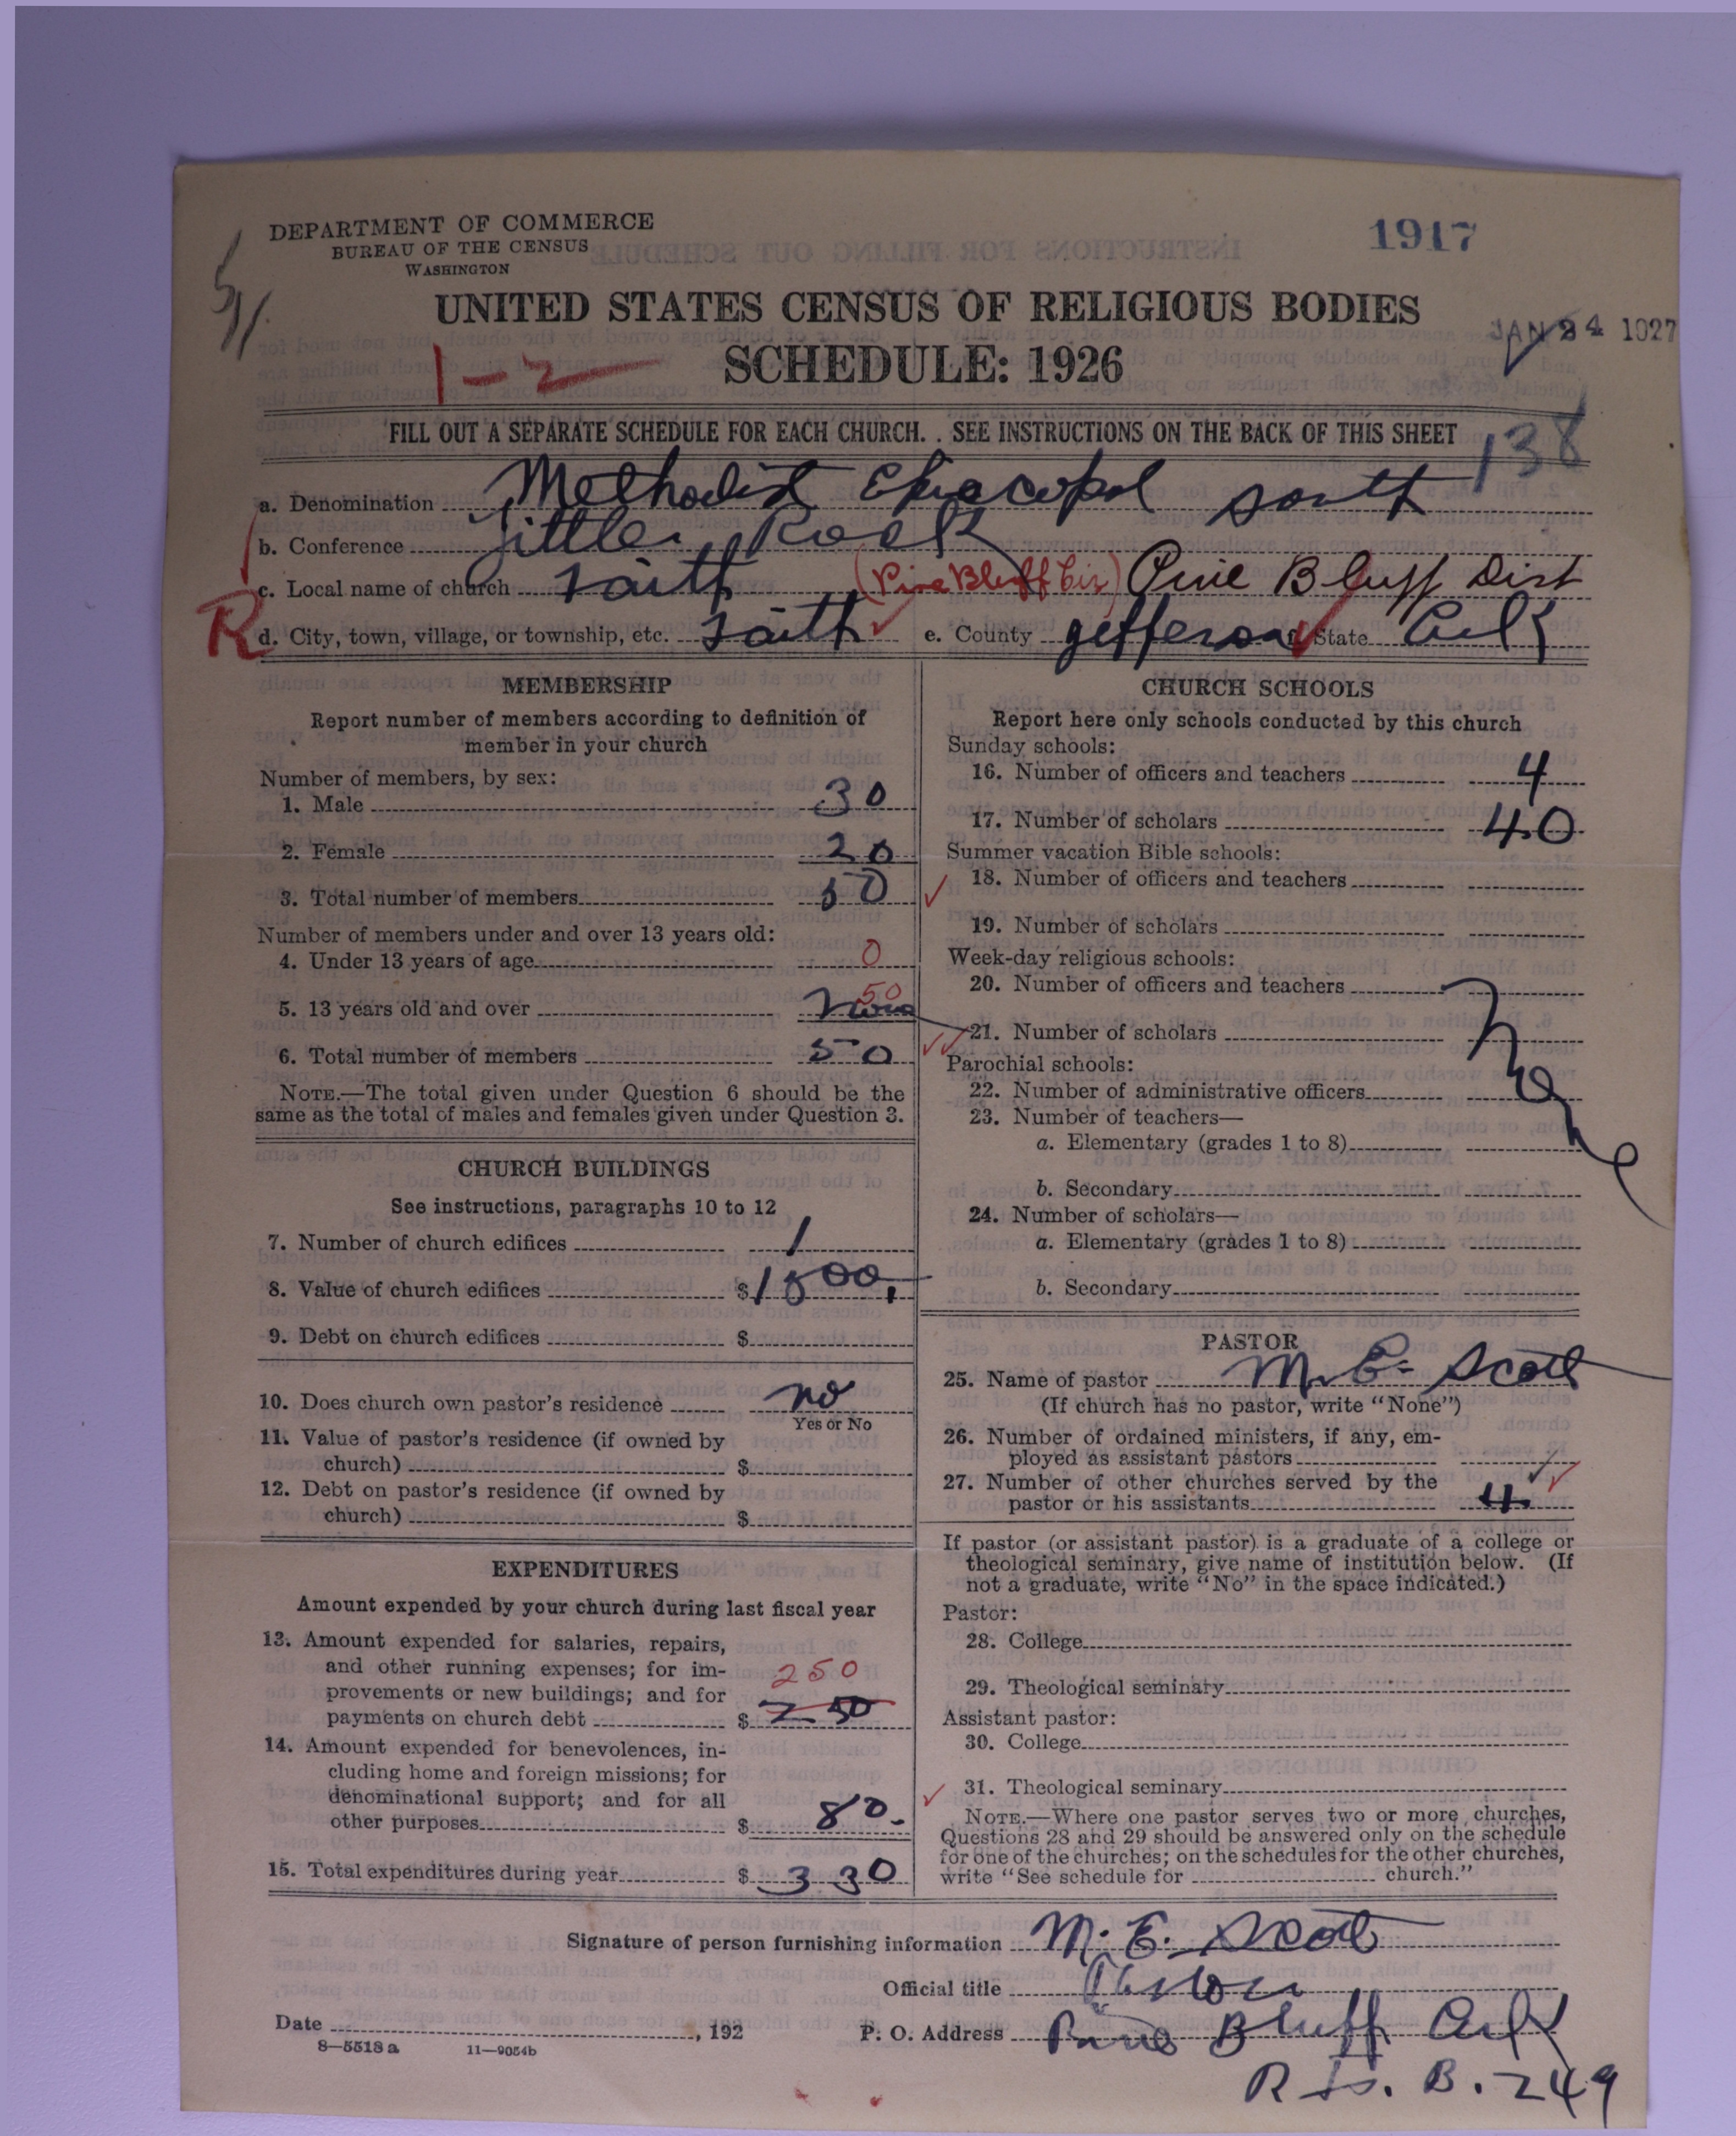 DEPARTMENT OF COMMERCE
BUREAU OF THE CENSUS
WASHINGTON
1917
UNITED STATES CENSUS OF RELIGIOUS BODIES
JAN 24 1927
1-2
SCHEDULE: 1926
FILL OUT A SEPARATE SCHEDULE FOR EACH CHURCH. . SEE INSTRUCTIONS ON THE BACK OF THIS SHEET
138
a. Denomination Methodist Episcopal South
b. Conference Little Rock
c. Local name of church Faith (Pine Bluff Cir) Pine Bluff Dist
R d. City, town, village, or township, etc. Faith e. County Jefferson f. State Ark
MEMBERSHIP
Report number of members according to definition of
member in your church
Number of members, by sex:
1. Male 30
2. Female 20
3. Total number of members 50
Number of members under and over 13 years old:
4. Under 13 years of age 0
5. 13 years old and over None 50
6. Total number of members 50
NOTE.—The total given under Question 6 should be the
same as the total of males and females given under Question 3.
CHURCH BUILDINGS
See instructions, paragraphs 10 to 12
7. Number of church edifices 1
8. Value of church edifices $1500,
9. Debt on church edifices $
10. Does church own pastor's residence no
Yes or No
11. Value of pastor's residence (if owned by
church) $
12. Debt on pastor's residence (if owned by
church) $
EXPENDITURES
Amount expended by your church during last fiscal year
13. Amount expended for salaries, repairs,
and other running expenses; for im-
provements or new buildings; and for 250
payments on church debt $ 250
14. Amount expended for benevolences, in-
cluding home and foreign missions; for
denominational support; and for all
other purposes $ 80-
15. Total expenditures during year $ 330
CHURCH SCHOOLS
Report here only schools conducted by this church
Sunday schools:
16. Number of officers and teachers 4
17. Number of scholars 40
Summer vacation Bible schools:
18. Number of officers and teachers
19. Number of scholars
Week-day religious schools:
20. Number of officers and teachers
21. Number of scholars None
Parochial schools:
22. Number of administrative officers
23. Number of teachers—
a. Elementary (grades 1 to 8)
b. Secondary
24. Number of scholars—
a. Elementary (grades 1 to 8)
b. Secondary
PASTOR
25. Name of pastor M. E. Scott
(If church has no pastor, write "None")
26. Number of ordained ministers, if any, em-
ployed as assistant pastors
27. Number of other churches served by the
pastor or his assistants 4
If pastor (or assistant pastor) is a graduate of a college or
theological seminary, give name of institution below. (If
not a graduate, write "No" in the space indicated.)
Pastor:
28. College
29. Theological seminary
Assistant pastor:
30. College
31. Theological seminary
NOTE.—Where one pastor serves two or more churches,
Questions 28 and 29 should be answered only on the schedule
for one of the churches; on the schedules for the other churches,
write "See schedule for church."
Signature of person furnishing information M. E. Scott
Official title Pastor
Date , 192
P. O. Address Pine Bluff Ark
8—5518 a 11—9054b
B. 249